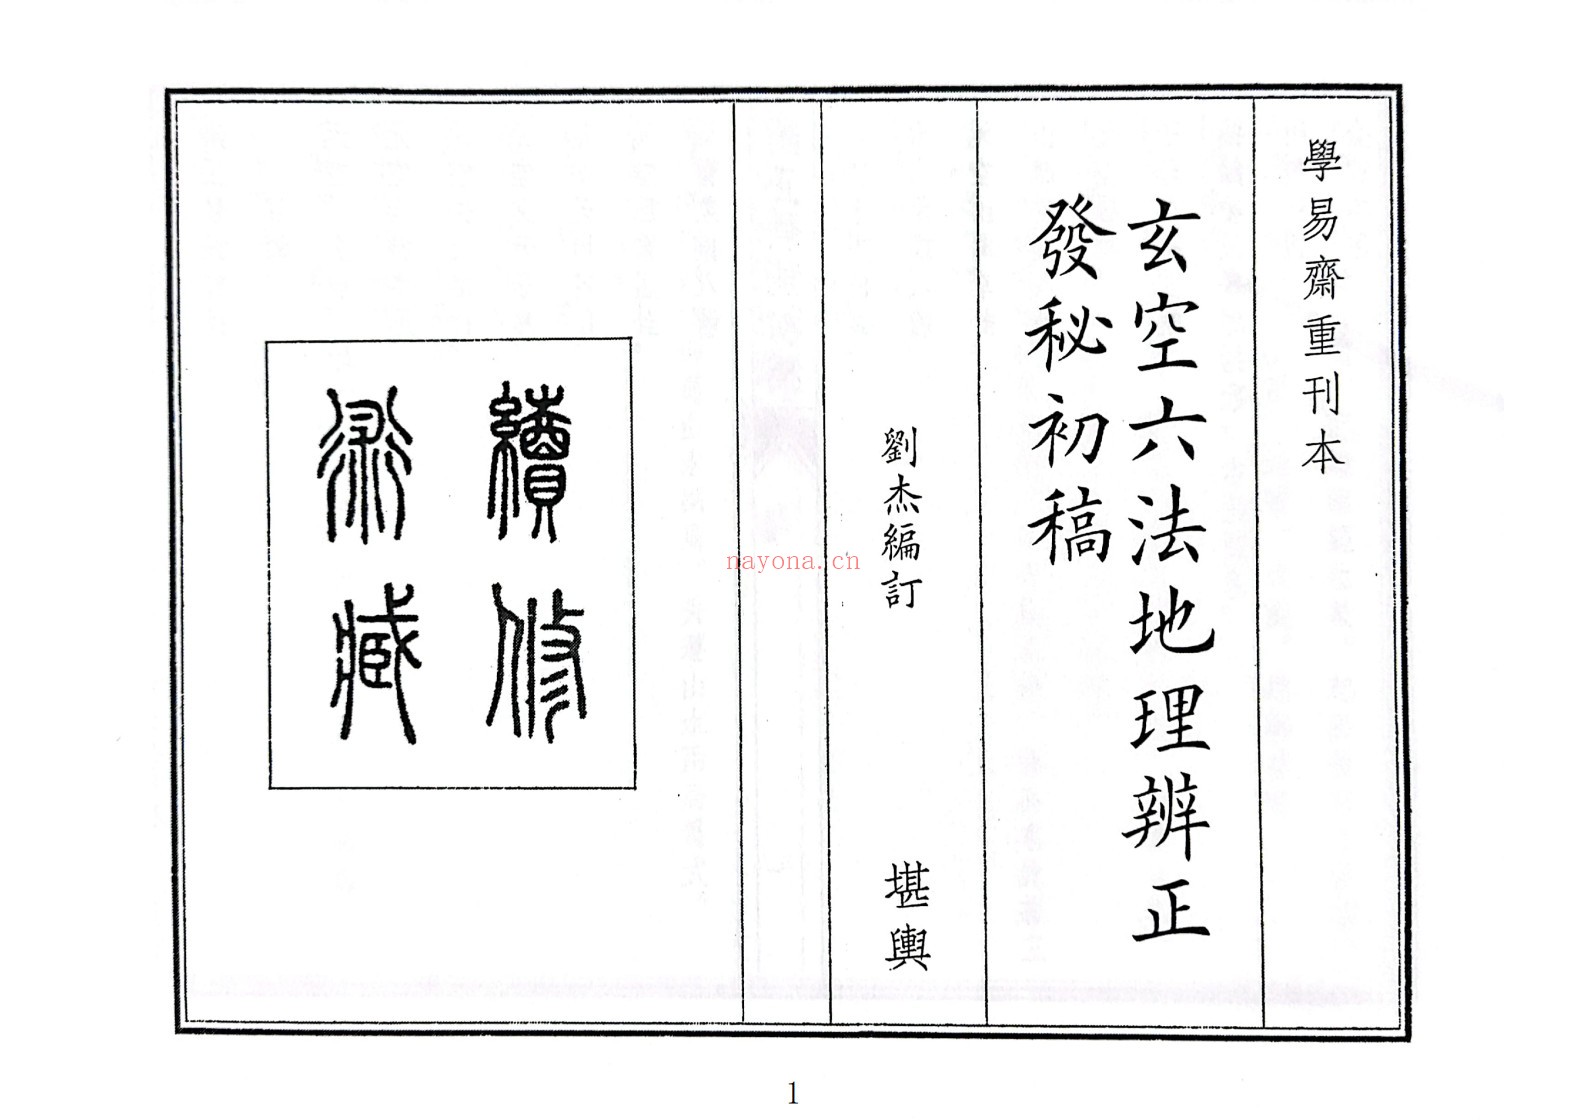 學易齋重刊本
玄空六法地理辨正
發秘初稿
劉杰編訂
堪輿
續修
術藏
nayona.cn
1